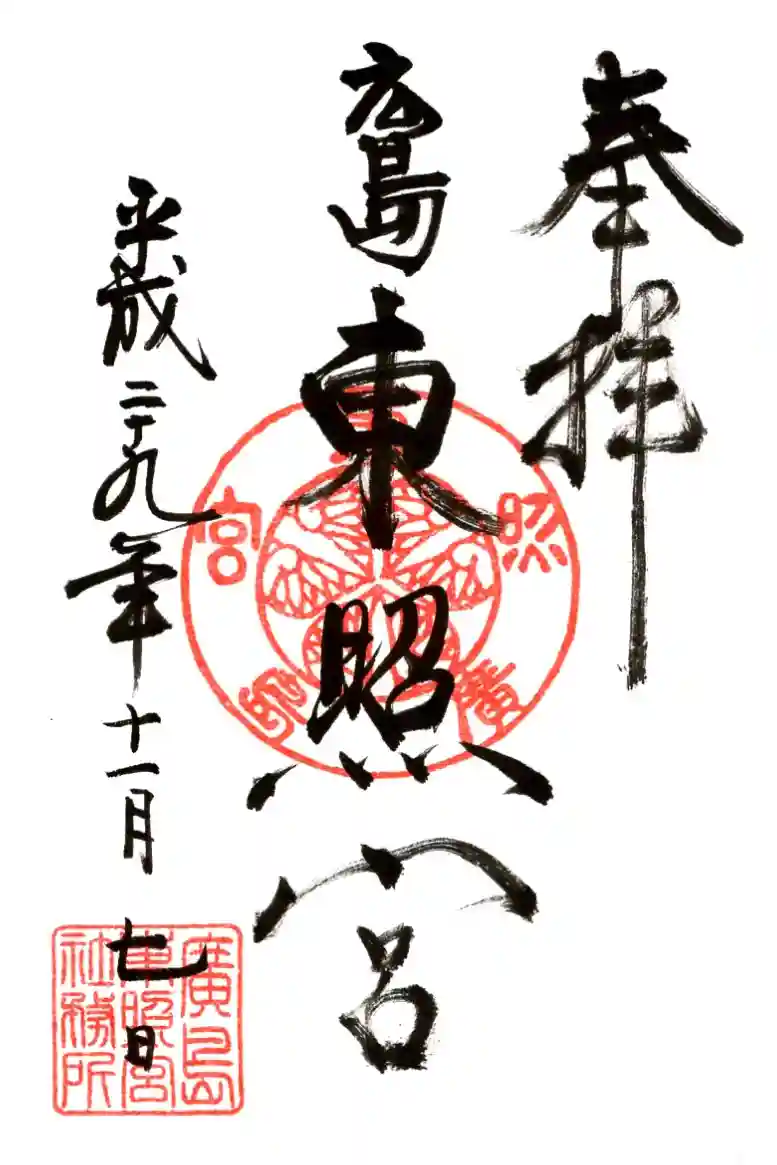 奉拝
広島東照宮
平成二十九年十一月七日
東照宮廣島
廣島
東照宮
社務所